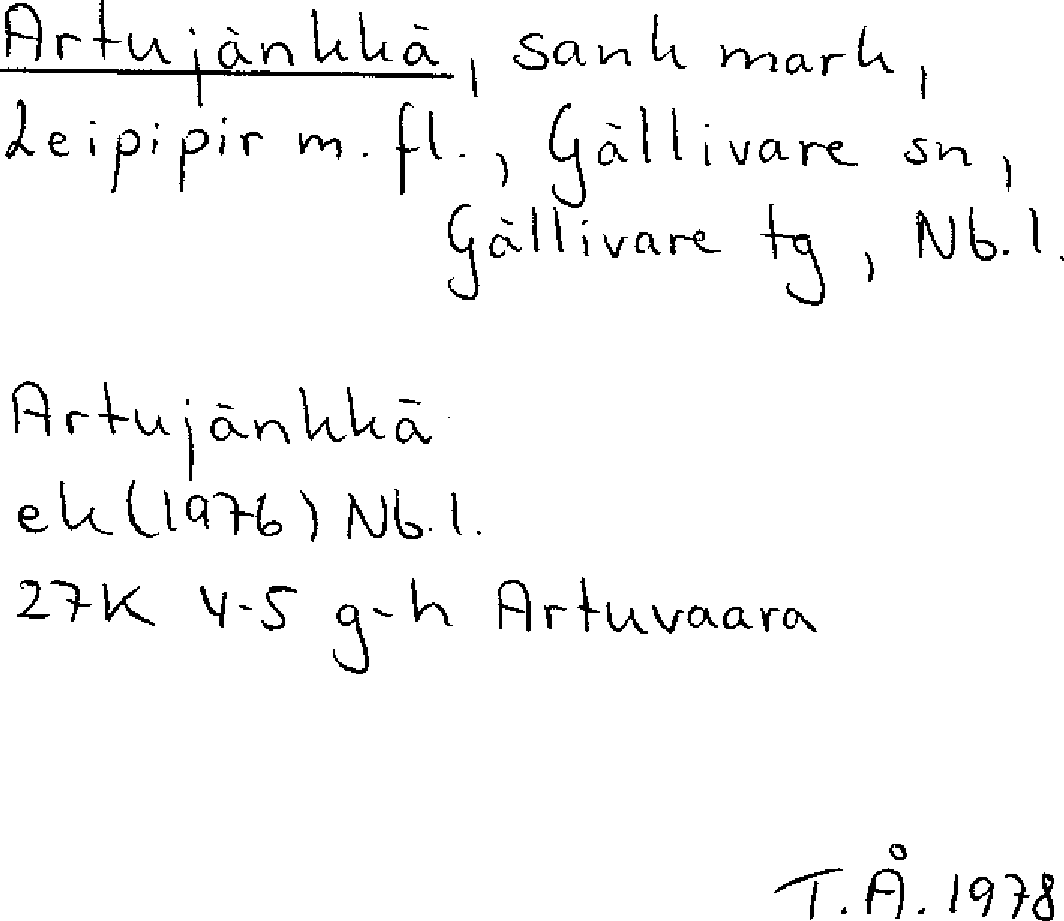 Artujänkkä, sank mark,
Leipipir m. fl., Gällivare sn,
Gällivare tg, Nb. l.
Artujänkkä
ek (1976) Nb. l.
27K 4-5 g-h Artuvaara
T.Å. 1978